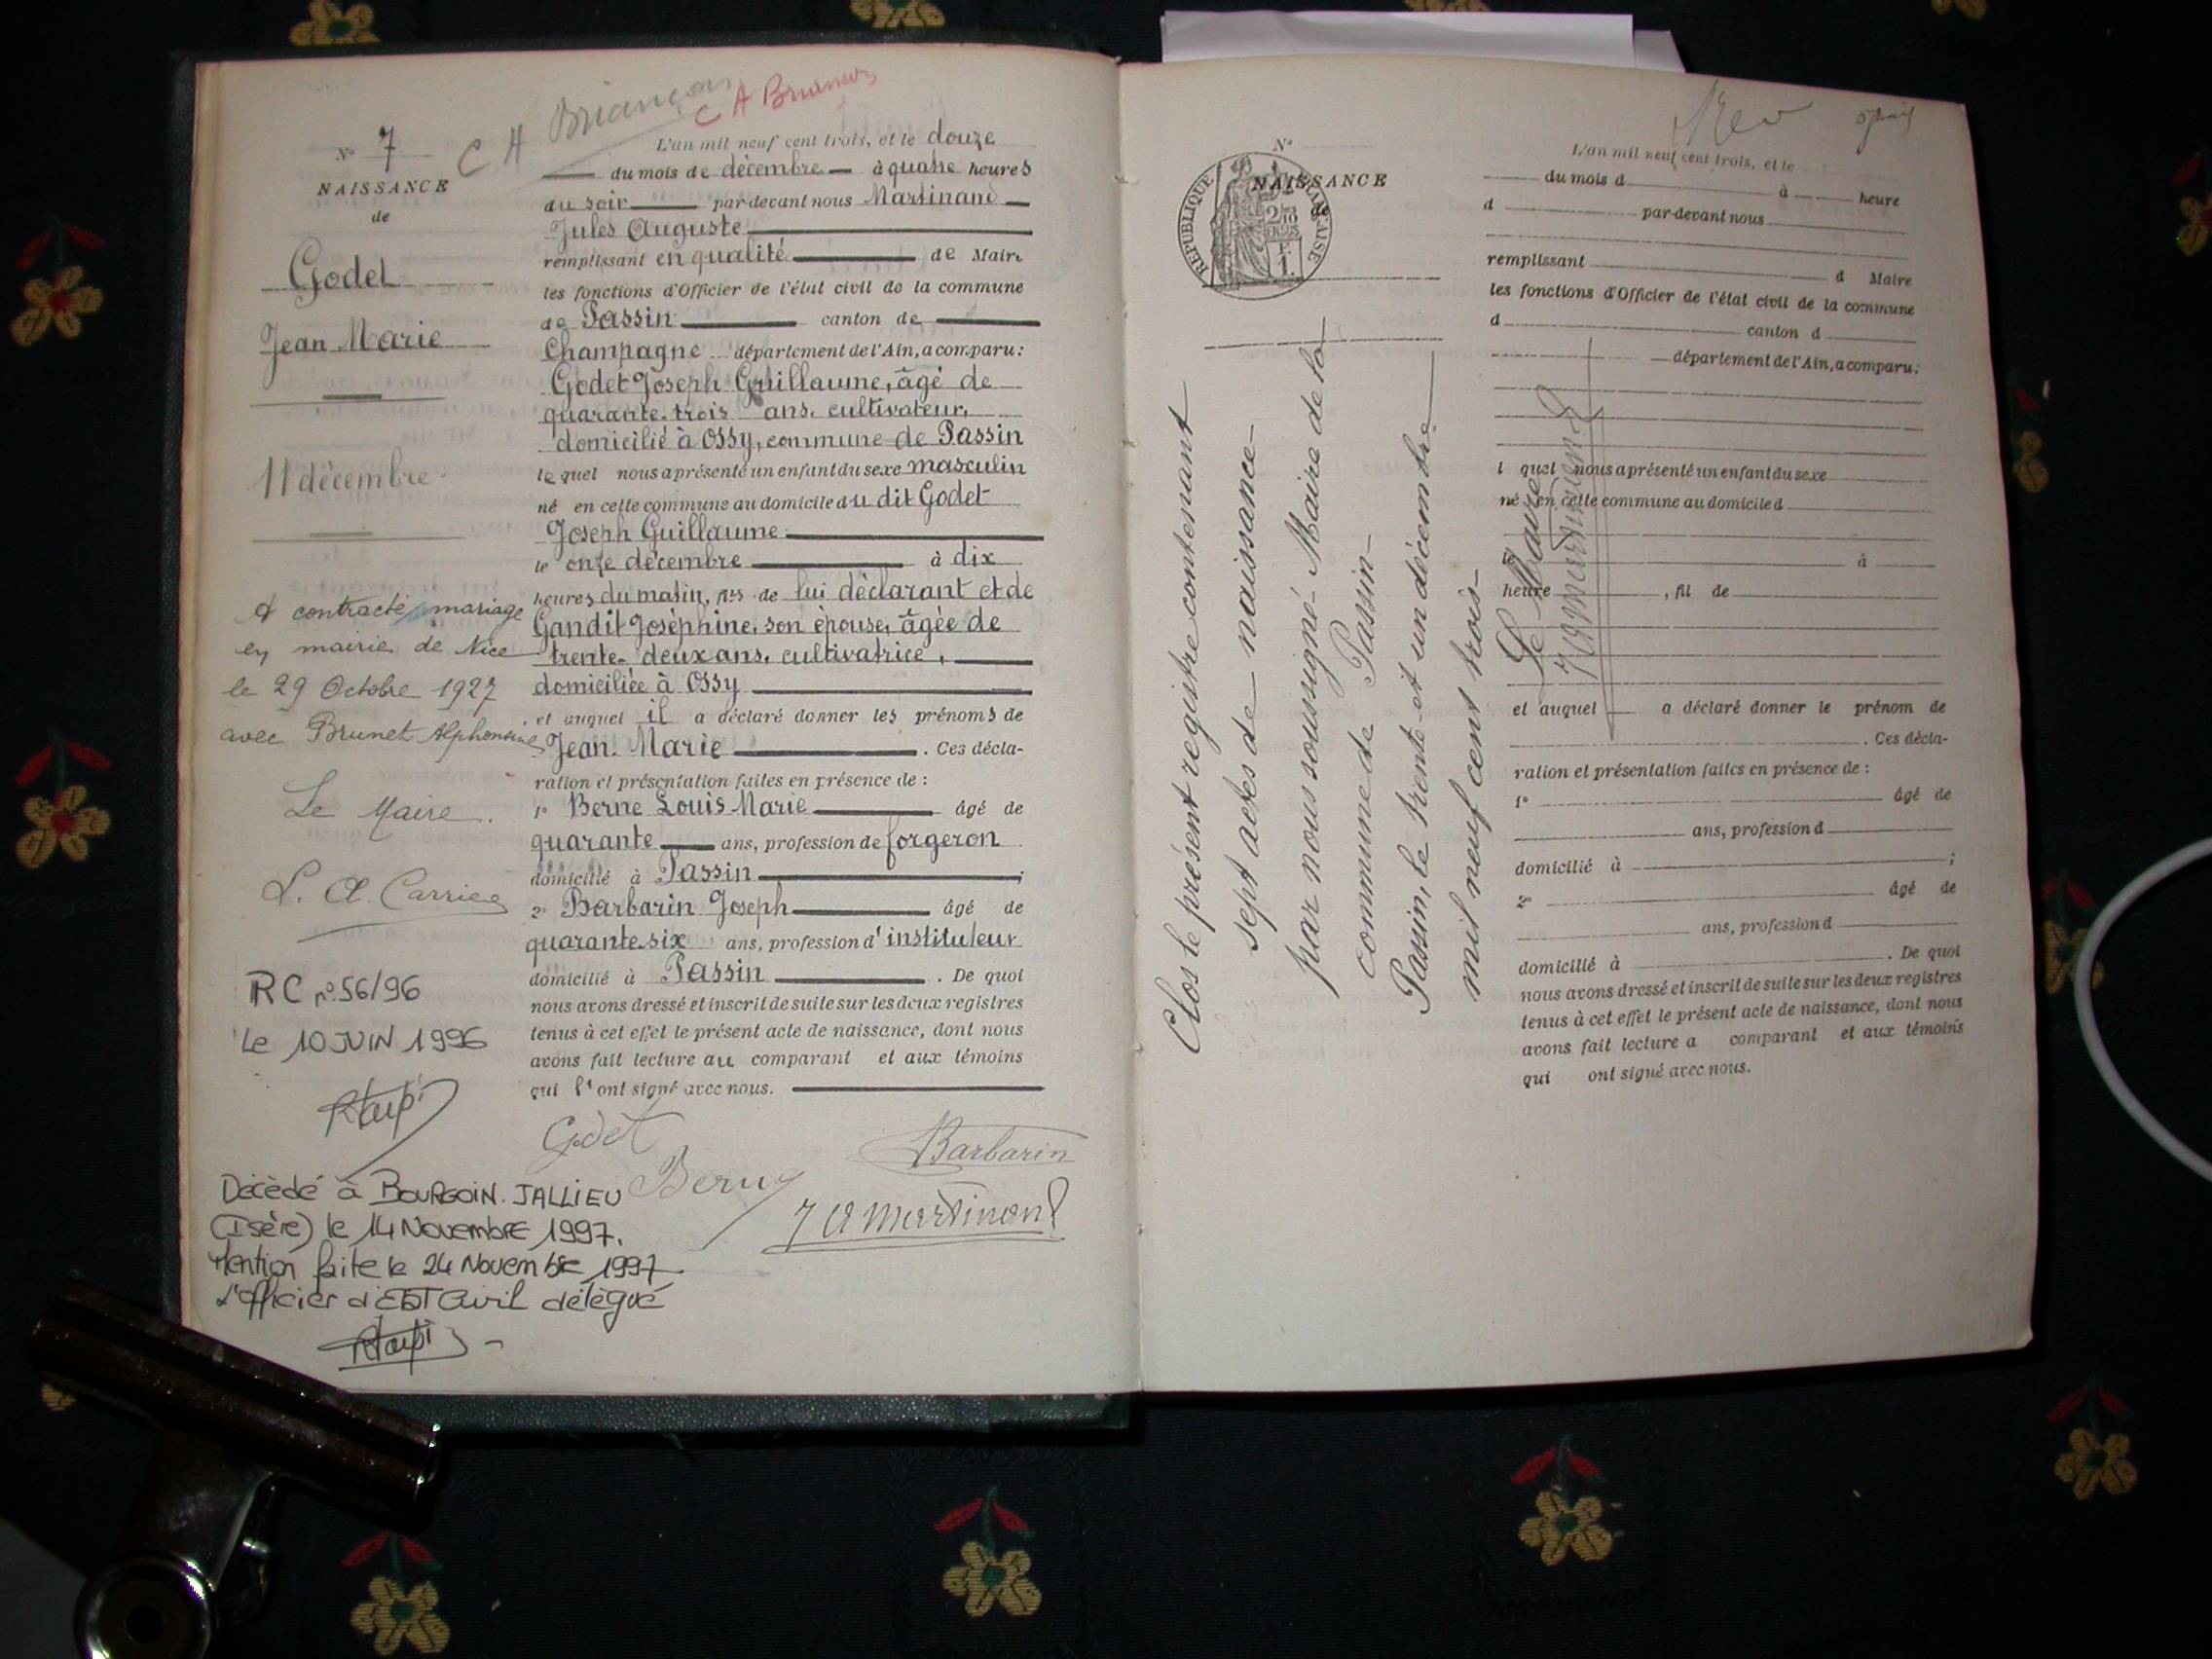 C A Briançon
C A Briançon
N° 7
NAISSANCE
de
Godet
Jean Marie
11 décembre
A contracté mariage
en mairie de Nice
le 29 Octobre 1927
avec Brunet Alphonsine
Le Maire.
RC n° 56/96
Le 10 JUIN 1996
Décédé à BOURGOIN. JALLIEU
(Isère) le 14 Novembre 1997.
Mention faite le 24 Novembre 1997
L'officier d'ETAT Civil délégué
L'an mil neuf cent trois, et le douze
du mois de décembre à quatre heures
du soir par-devant nous Martinand
Jules Auguste
remplissant en qualité de Maire
les fonctions d'Officier de l'état civil de la commune
de Passin canton de
Champagne département de l'Ain, a comparu:
Godet Joseph Guillaume, âgé de
quarante-trois ans, cultivateur,
domicilié à Ossy, commune de Passin
lequel nous a présenté un enfant du sexe masculin
né en cette commune au domicile du dit Godet
Joseph Guillaume
le onze décembre à dix
heures du matin, fils de lui déclarant et de
Gandit Joséphine, son épouse, âgée de
trente-deux ans, cultivatrice,
domiciliée à Ossy
et auquel il a déclaré donner les prénoms de
Jean Marie . Ces décla-
ration et présentation faites en présence de :
1° Berne Louis Marie âgé de
quarante ans, profession de forgeron
domicilié à Passin ;
2° Barbarin Joseph âgé de
quarante-six ans, profession d'instituteur
domicilié à Passin . De quoi
nous avons dressé et inscrit de suite sur les deux registres
tenus à cet effet le présent acte de naissance, dont nous
avons fait lecture au comparant et aux témoins
qui l'ont signé avec nous.
Godet
Barbarin
Berne
J A Martinand
N°
NAISSANCE
de
REPUBLIQUE FRANÇAISE
Clos le présent registre contenant
sept actes de naissance
par nous soussigné Maire de la
commune de Passin
Passin, le trente et un décembre
mil neuf cent trois
Le Maire
J A Martinand
L'an mil neuf cent trois, et le
du mois d à heure
d par-devant nous
remplissant d Maire
les fonctions d'Officier de l'état civil de la commune
d canton d
département de l'Ain, a comparu:
l quel nous a présenté un enfant du sexe
né en cette commune au domicile d
le à
heure , fil de
et auquel a déclaré donner le prénom de
. Ces décla-
ration et présentation faites en présence de :
1° âgé de
ans, profession d
domicilié à ;
2° âgé de
ans, profession d
domicilié à . De quoi
nous avons dressé et inscrit de suite sur les deux registres
tenus à cet effet le présent acte de naissance, dont nous
avons fait lecture a comparant et aux témoins
qui ont signé avec nous.